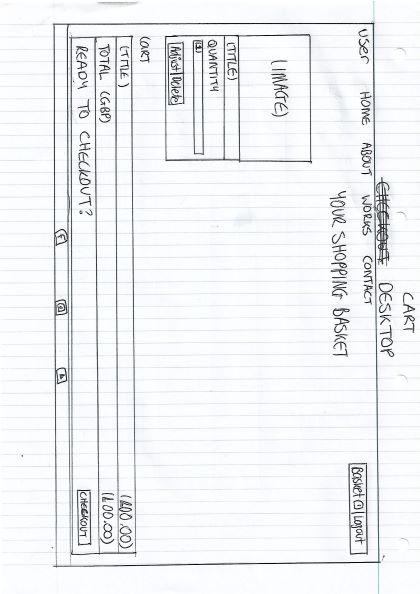 CART
CHECKOUT DESKTOP
User HOME ABOUT WORKS CONTACT
Basket ① Logout
YOUR SHOPPING BASKET
(IMAGE)
(TITLE)
QUANTITY
(1)
Adjust Delete
CART
(TITLE) (£00.00)
TOTAL (GBP) (£00.00)
READY TO CHECKOUT? CHECKOUT
F